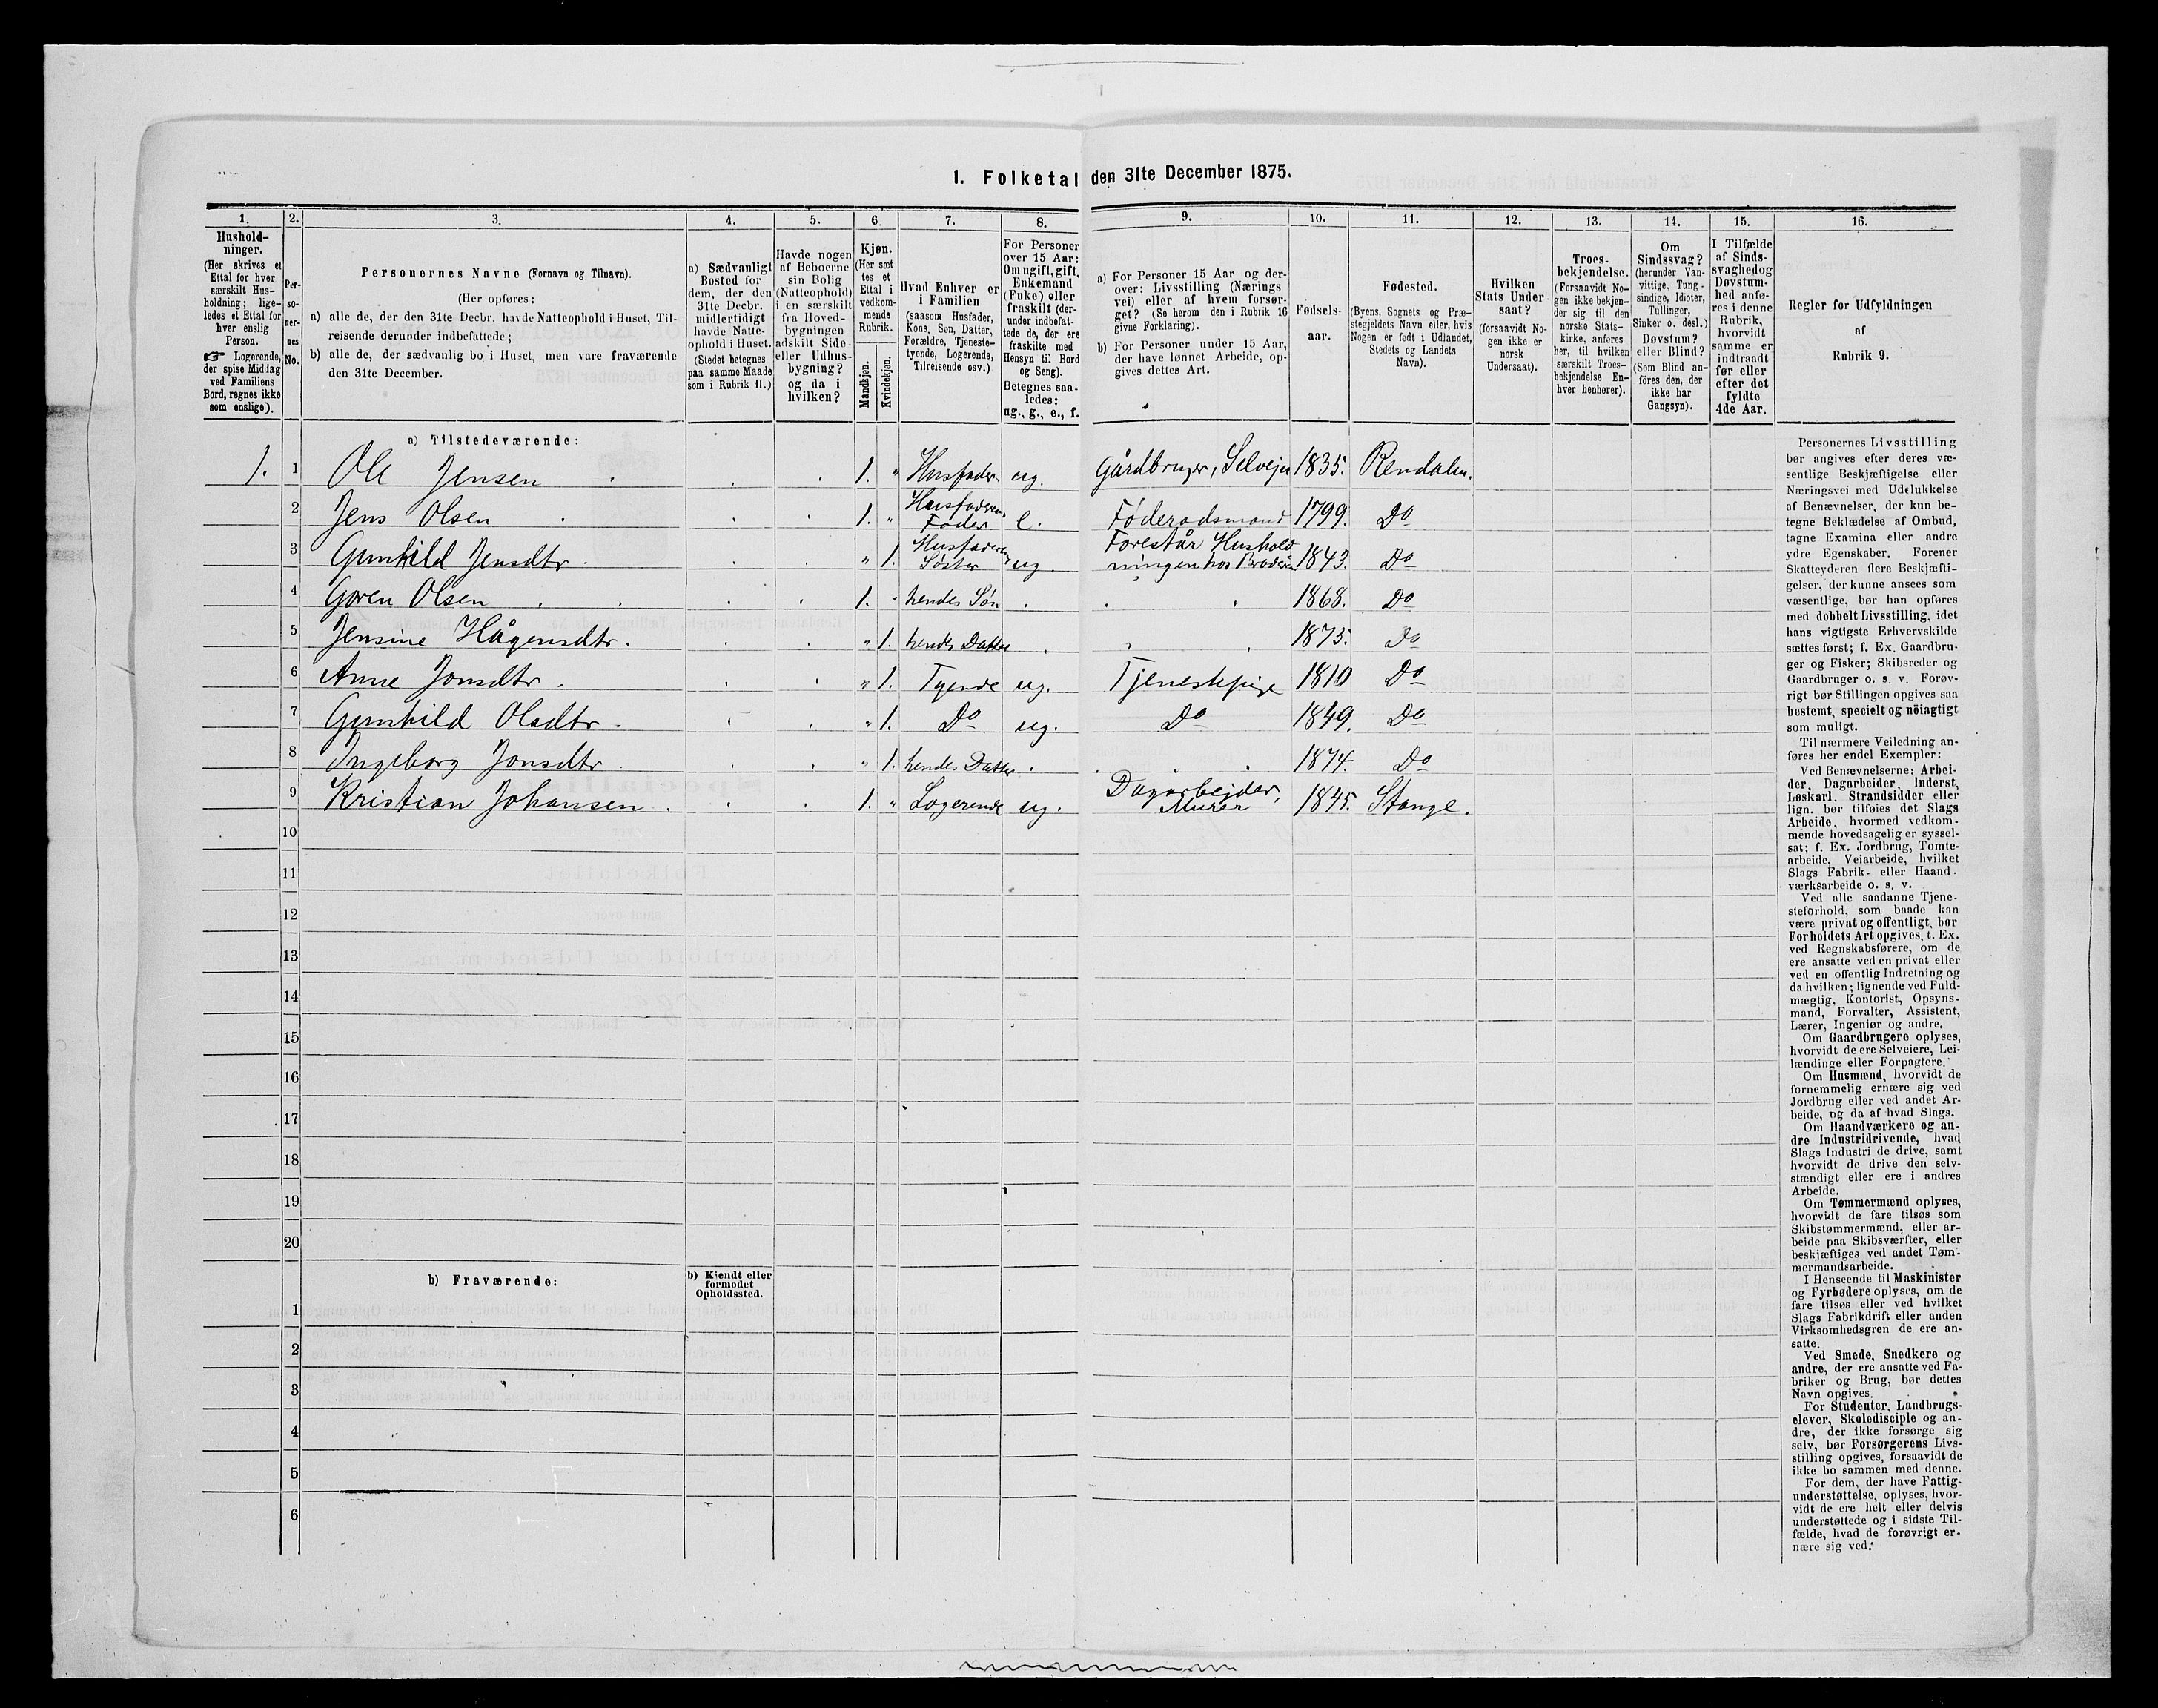 I. Folketal den 31te December 1875.
1. 2. 3. 4. 5. 6. 7. 8. 9. 10. 11. 12. 13. 14. 15. 16.
Hushold-
ninger.
(Her skrives et
Ettal for hver
særskilt Hus-
holdning; lige-
ledes et Ettal for
hver enslig
Person.
☞ Logerende,
der spise Middag
ved Familiens
Bord, regnes ikke
som enslige).
Per-
so-
ner-
nes
No.
Personernes Navne (Fornavn og Tilnavn).
(Her opføres:
a) alle de, der den 31te Decbr. havde Natteophold i Huset, Til-
reisende derunder indbefattede;
b) alle de, der sædvanlig bo i Huset, men vare fraværende
den 31te December.
a) Sædvanligt
Bosted for
dem, der den
31te Decbr.
midlertidigt
havde Natte-
ophold i Huset.
(Stedet betegnes
paa samme Maade
som i Rubrik 11.)
Havde nogen
af Beboerne
sin Bolig
(Natteophold)
i en særskilt
fra Hoved-
bygningen
adskilt Side-
eller Udhus-
bygning?
og da i
hvilken?
Kjøn.
(Her sæt
tes et
Ettal i
vedkom-
mende
Rubrik.
Mandkjøn.
Kvindekjøn.
Hvad Enhver er
i Familien
(saasom Husfader,
Kone, Søn, Datter,
Forældre, Tjeneste-
tyende, Logerende,
Tilreisende osv.)
For Personer
over 15 Aar:
Om ugift, gift,
Enkemand
(Enke) eller
fraskilt (der-
under indbefat-
tede de, der ere
fraskilte med
Hensyn til Bord
og Seng).
Betegnes saa-
ledes:
ug., g., e., f.
a) For Personer 15 Aar og der-
over: Livsstilling (Nærings
vei) eller af hvem forsør-
get? (Se herom den i Rubrik 16
givne Forklaring).
b) For Personer under 15 Aar,
der have lønnet Arbeide, op-
gives dettes Art.
Fødsels-
aar.
Fødested.
(Byens, Sognets og Præ-
stegjeldets Navn eller, hvis
Nogen er født i Udlandet,
Stedets og Landets
Navn).
Hvilken
Stats Under
saat?
(forsaavidt No-
gen ikke er
norsk
Undersaat).
Troes-
bekjendelse.
(Forsaavidt No-
gen ikke bekjen-
der sig til den
norske Stats-
kirke, anføres
her, til hvilken
særskilt Troes-
bekjendelse En-
hver henhører).
Om
Sindssvag?
(herunder Van-
vittige, Tung-
sindige, Idioter,
Tullinger,
Sinker o. desl.)
Døvstum?
eller Blind?
(Som Blind an-
føres den, der
ikke har
Gangsyn).
I Tilfælde
af Sinds-
svaghedog
Døvstum-
hed anfø-
res i denne
Rubrik,
hvorvidt
samme er
indtraadt
før eller
efter det
fyldte
4de Aar.
Regler for Udfyldningen
af
Rubrik 9.
a) Tilstedeværende:
1. 1 Ole Jensen . . . 1. " Husfader. ug. Gårdbruger, Selvejer 1835. Rendalen.
2 Jens Olsen . . . 1. " Husfaderens Fader e. Føderadsmand 1799. Do
3 Gunhild Jensdtr. . . " 1. Husfaderens Søster ug. Forestår Hushold ningen hos Broderen 1843. Do
4 Goren Olsen . . . . 1. " hendes Søn . . . 1868. Do
5 Jensine Hågensdtr. . . " 1. hendes Datter . " . 1875. Do
6 Anne Jonsdtr . . . " 1. Tyende ug. Tjenestepige 1810 Do
7 Gunhild Olsdtr . . . " 1. Do ug. Do 1849. Do
8 Ingeborg Jonsdtr . . . " 1. hendes Datter . . . . 1874. Do
9 Kristian Johansen . . . 1. " Logerende ug. Dagarbejder, Murer 1845. Stange.
10
11
12
13
14
15
16
17
18
19
20
b) Fraværende:
b) Kjendt eller
formodet
Opholdssted.
1
2
3
4
5
6
Personernes Livsstilling
bør angives efter deres væ-
sentlige Beskjæftigelse eller
Næringsvei med Udelukkelse
af Benævnelser, der kun be-
tegne Beklædelse af Ombud,
tagne Examina eller andre
ydre Egenskaber. Forener
Skatteyderen flere Beskjæfti-
gelser, der kunne ansees som
væsentlige, bør han opføres
med dobbelt Livsstilling, idet
hans vigtigste Erhvervskilde
sættes først; f. Ex. Gaardbru-
ger og Fisker; Skibsreder og
Gaardbruger o. s. v. Forøv-
rigt bør Stillingen opgives saa
bestemt, specielt og nöiagtigt
som muligt.
Til nærmere Veiledning an-
føres her endel Exempler:
Ved Benævnelserne: Arbei-
der, Dagarbeider, Inderst,
Løskarl, Strandsidder eller
lign. bør tilføies det Slags
Arbeide, hvormed vedkom-
mende hovedsagelig er syssel-
sat; f. Ex. Jordbrug, Tomte-
arbeide, Veiarbeide, hvilket
Slags Fabrik- eller Haand-
værksarbeide o. s. v.
Ved alle saadanne Tjene-
steforhold, som baade kan
være privat og offentligt, bør
Forholdets Art opgives, t. Ex.
ved Regnskabsførere, om de
ere ansatte ved en privat eller
ved en offentlig Indretning og
da hvilken; lignende ved Fuld-
mægtig, Kontorist, Opsyns-
mand, Forvalter, Assistent,
Lærer, Ingeniør og andre.
Om Gaardbrugere oplyses,
hvorvidt de ere Selveiere, Lei-
lændinge eller Forpagtere.
Om Husmænd, hvorvidt de
fornemmelig ernære sig ved
Jordbrug eller ved andet Ar-
beide, og da af hvad Slags.
Om Haandværkere og an-
dre Industridrivende, hvad
Slags Industri de drive, samt
hvorvidt de drive den selv-
stændigt eller ere i andres
Arbeide.
Om Tømmermænd oplyses,
hvorvidt de fare tilsøs som
Skibstømmermænd, eller ar-
beide paa Skibsværfter, eller
beskjæftiges ved andet Tøm-
mermandsarbeide.
I Henseende til Maskinister
og Fyrbødere oplyses, om de
fare tilsøs eller ved hvilket
Slags Fabrikdrift eller anden
Virksomhedsgren de ere an-
satte.
Ved Smede, Snedkere og
andre, der ere ansatte ved Fa-
briker og Brug, bør dettes
Navn opgives.
For Studenter, Landbrugs-
elever, Skoledisciple og an-
dre, der ikke forsørge sig
selv, bør Forsørgerens Livs-
stilling opgives, forsaavidt de
ikke bo sammen med denne.
For dem, der have Fattig-
understøttelse, oplyses, hvor-
vidt de ere helt eller delvis
understøttede og i sidste Til-
fælde, hvad de forøvrigt er-
nære sig ved.